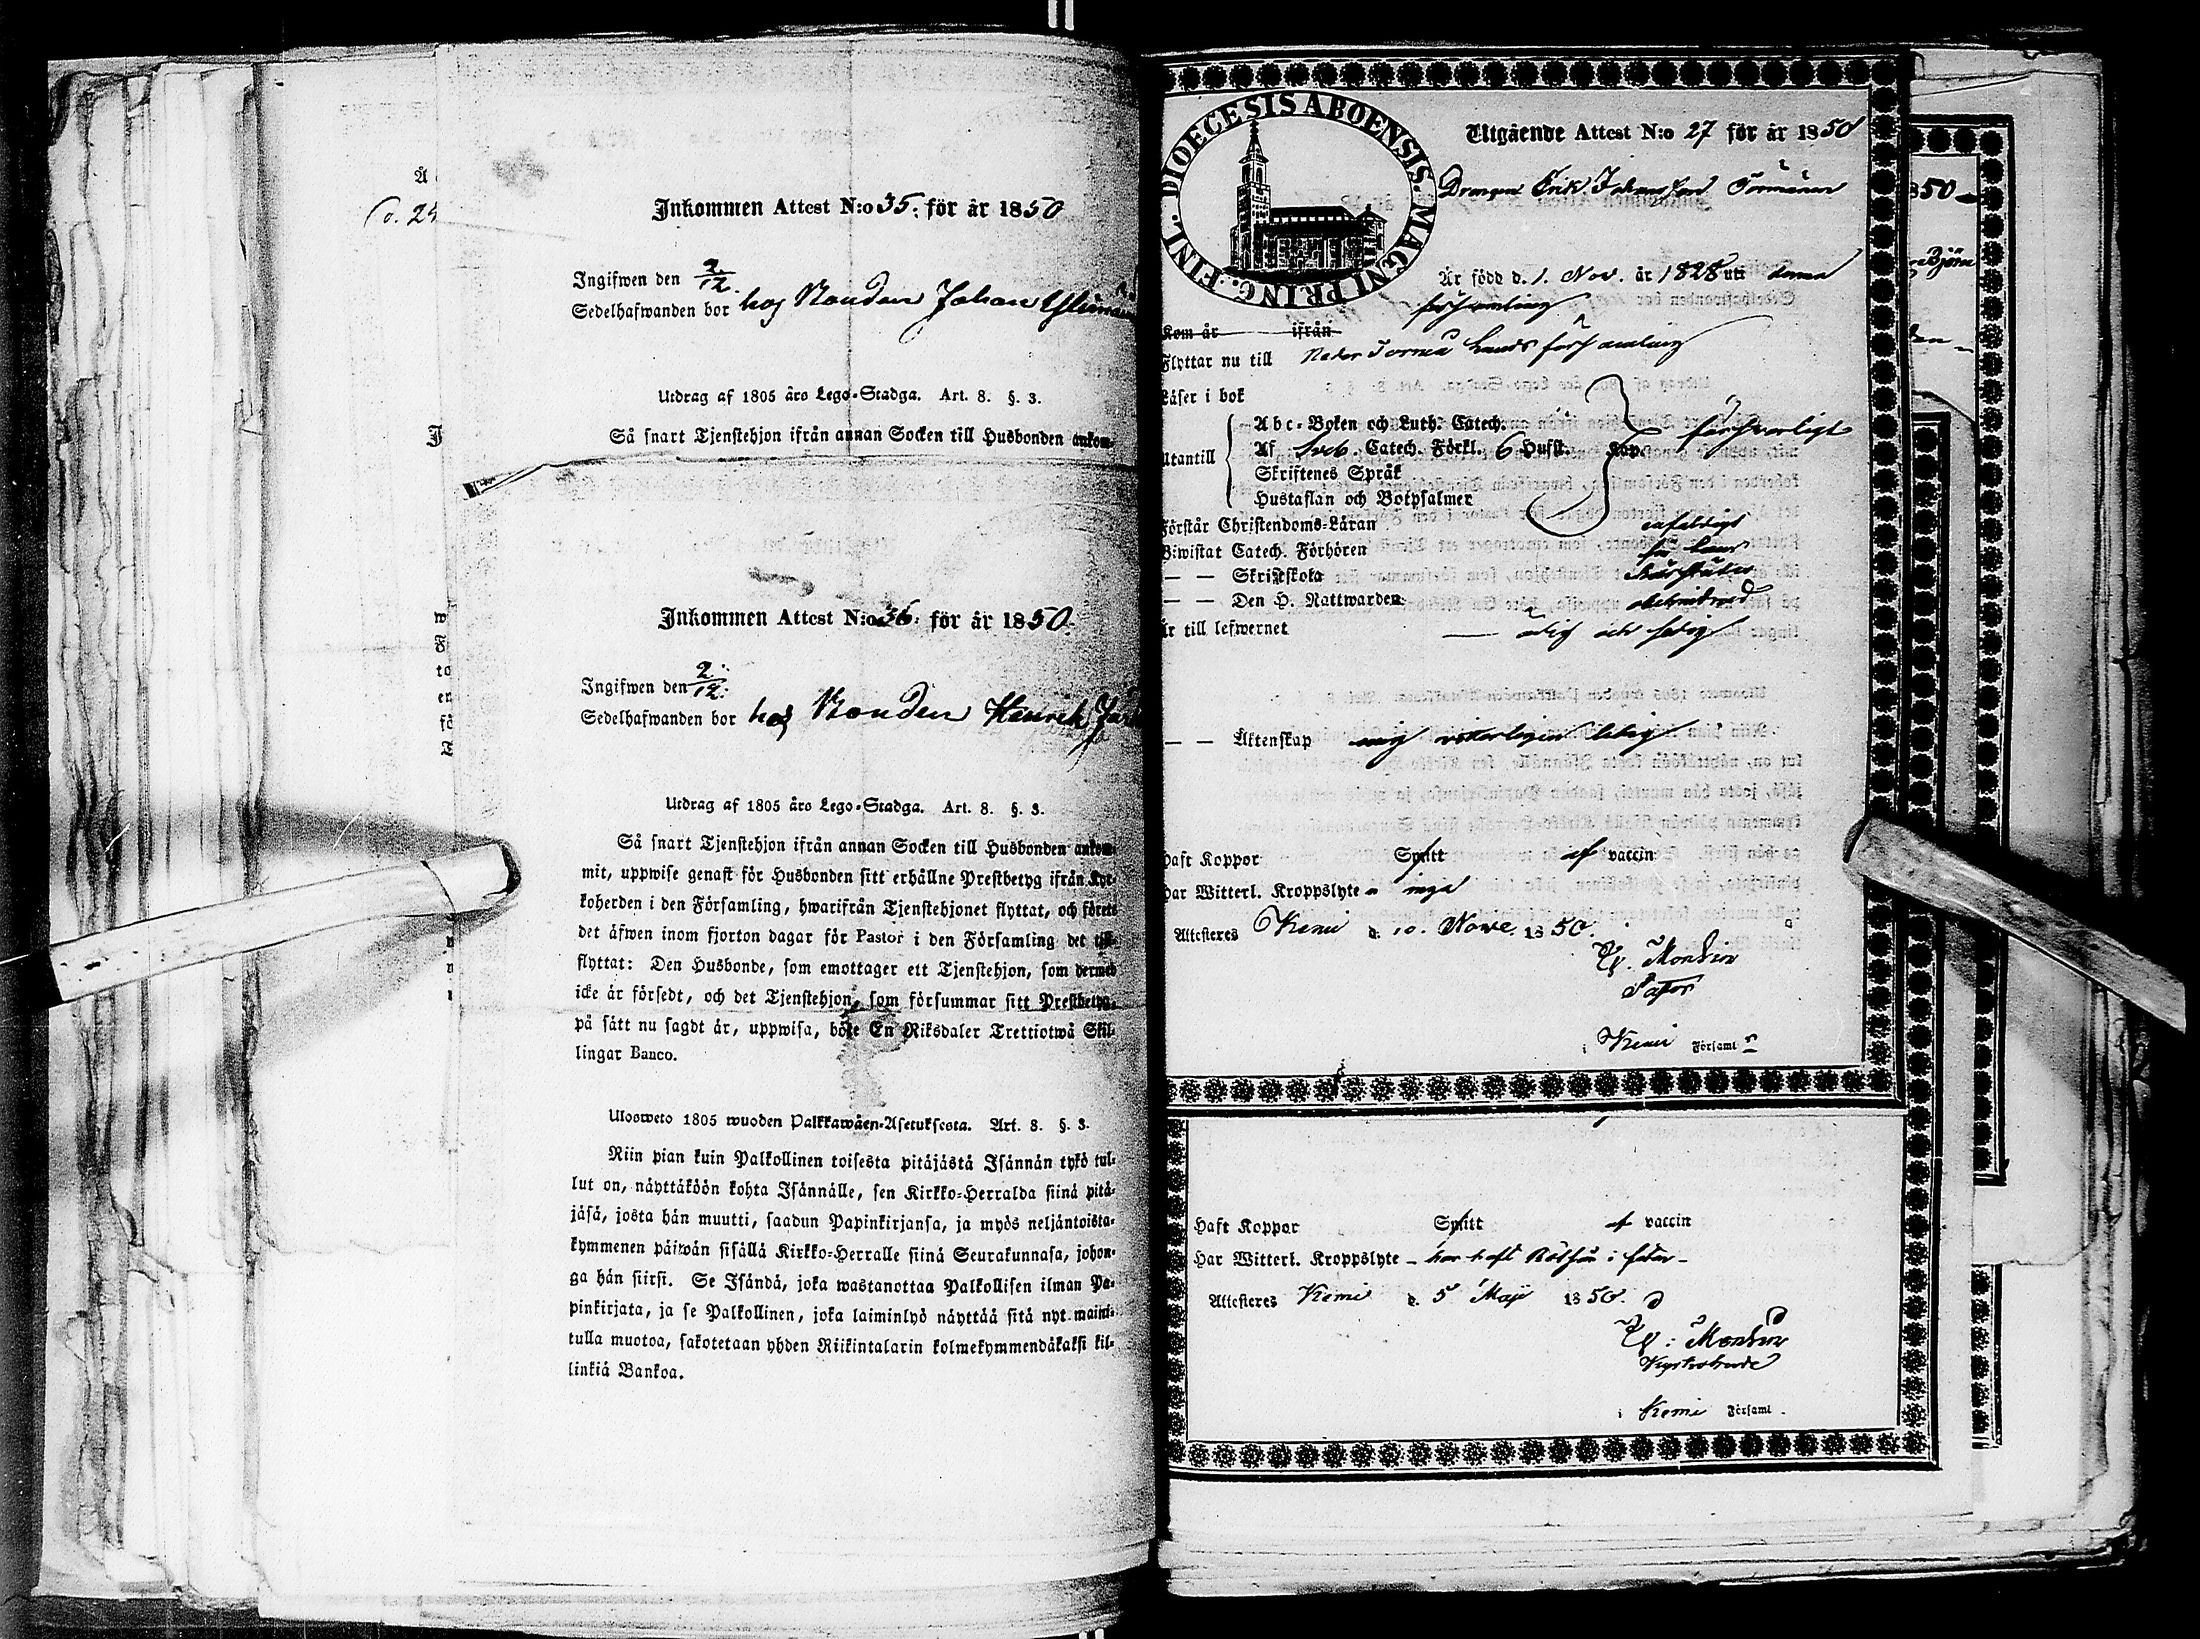 Inkommen Attest N:o 35. för år 1850
Ingifwen den 2/12.
Sedelhafwanden bor hos Bonden Johan
Utdrag af 1805 års Lego-Stadga. Art. 8. §. 3.
Så snart Tjenstehjon ifrån annan Socken till Husbonden ankom-
Inkommen Attest N:o 36. för år 1850.
Ingifwen den 2/12.
Sedelhafwanden bor hos Bonden Henrik
Utdrag af 1805 års Lego-Stadga. Art. 8. §. 3.
Så snart Tjenstehjon ifrån annan Socken till Husbonden ankom-
mit, uppwise genast för Husbonden sitt erhållne Prestbetyg ifrån Kyr-
koherden i den Församling, hwarifrån Tjenstehjonet flyttat, och förete
det äfwen inom fjorton dagar för Pastor i den Församling det till-
flyttat: Den Husbonde, som emottager ett Tjenstehjon, som dermed
icke är försedt, och det Tjenstehjon, som försummar sitt Prestbetyg,
på sätt nu sagdt är, uppwisa, böte En Riksdaler Trettiotwå Skil-
lingar Banco.
Ulosweto 1805 wuoden Palkkawäen-Asetuksesta. Art. 8. §. 3.
Niin pian kuin Palkollinen toisesta pitäjästä Isännän tykö tul-
lut on, näyttäköön kohta Isännälle, sen Kirkko-Herralda siinä pitä-
jäsä, josta hän muutti, saadun Papinkirjansa, ja myös neljäntoista-
kymmenen päiwän sisällä Kirkko-Herralle siinä Seurakunnasa, johon-
ga hän siirsi. Se Isändä, joka wastanottaa Palkollisen ilman Pa-
pinkirjata, ja se Palkollinen, joka laiminlyö näyttää sitä nyt maini-
tulla muotoa, sakotetaan yhden Riikintalarin kolmekymmendäkaksi kil-
linkiä Bankoa.
DIOECESIS ABOENSIS. MAGNI PRINC. FINL.
Utgående Attest N:o 27 för år 1850
Drengen Erik Johansson Törmänen
Är född d. 1. Nov. år 1828 uti denna
församling
Kom år ifrån
Flyttar nu till Neder Torneå Lands församling
Läser i bok
Abc-Boken och Luth. Catech.
Utantill Af Sveb. Catech. Förkl. 6 Hufst. Kap. försvarligt
Skriftenes Språk
Hustaflan och Botpsalmer
Förstår Christendoms-Läran enfaldigt
Biwistat Catech. Förhören
— — Skriftskola
— — Den H. Nattwarden obehindrad
Är till lefwernet — ärlig och sedig
— — Äktenskap mig veterligen ledig
Haft Koppor Spritt af vaccin
Har Witterl. Kroppslyte - inga
Attesteres Kemi d. 10. Nove. 1850.
Pastor
i Kemi Församl
Haft Koppor Spritt af vaccin
Har Witterl. Kroppslyte - har haft
Attesteres Kemi d. 5 Maji 1850.
i Kemi Församl.
850
Björn